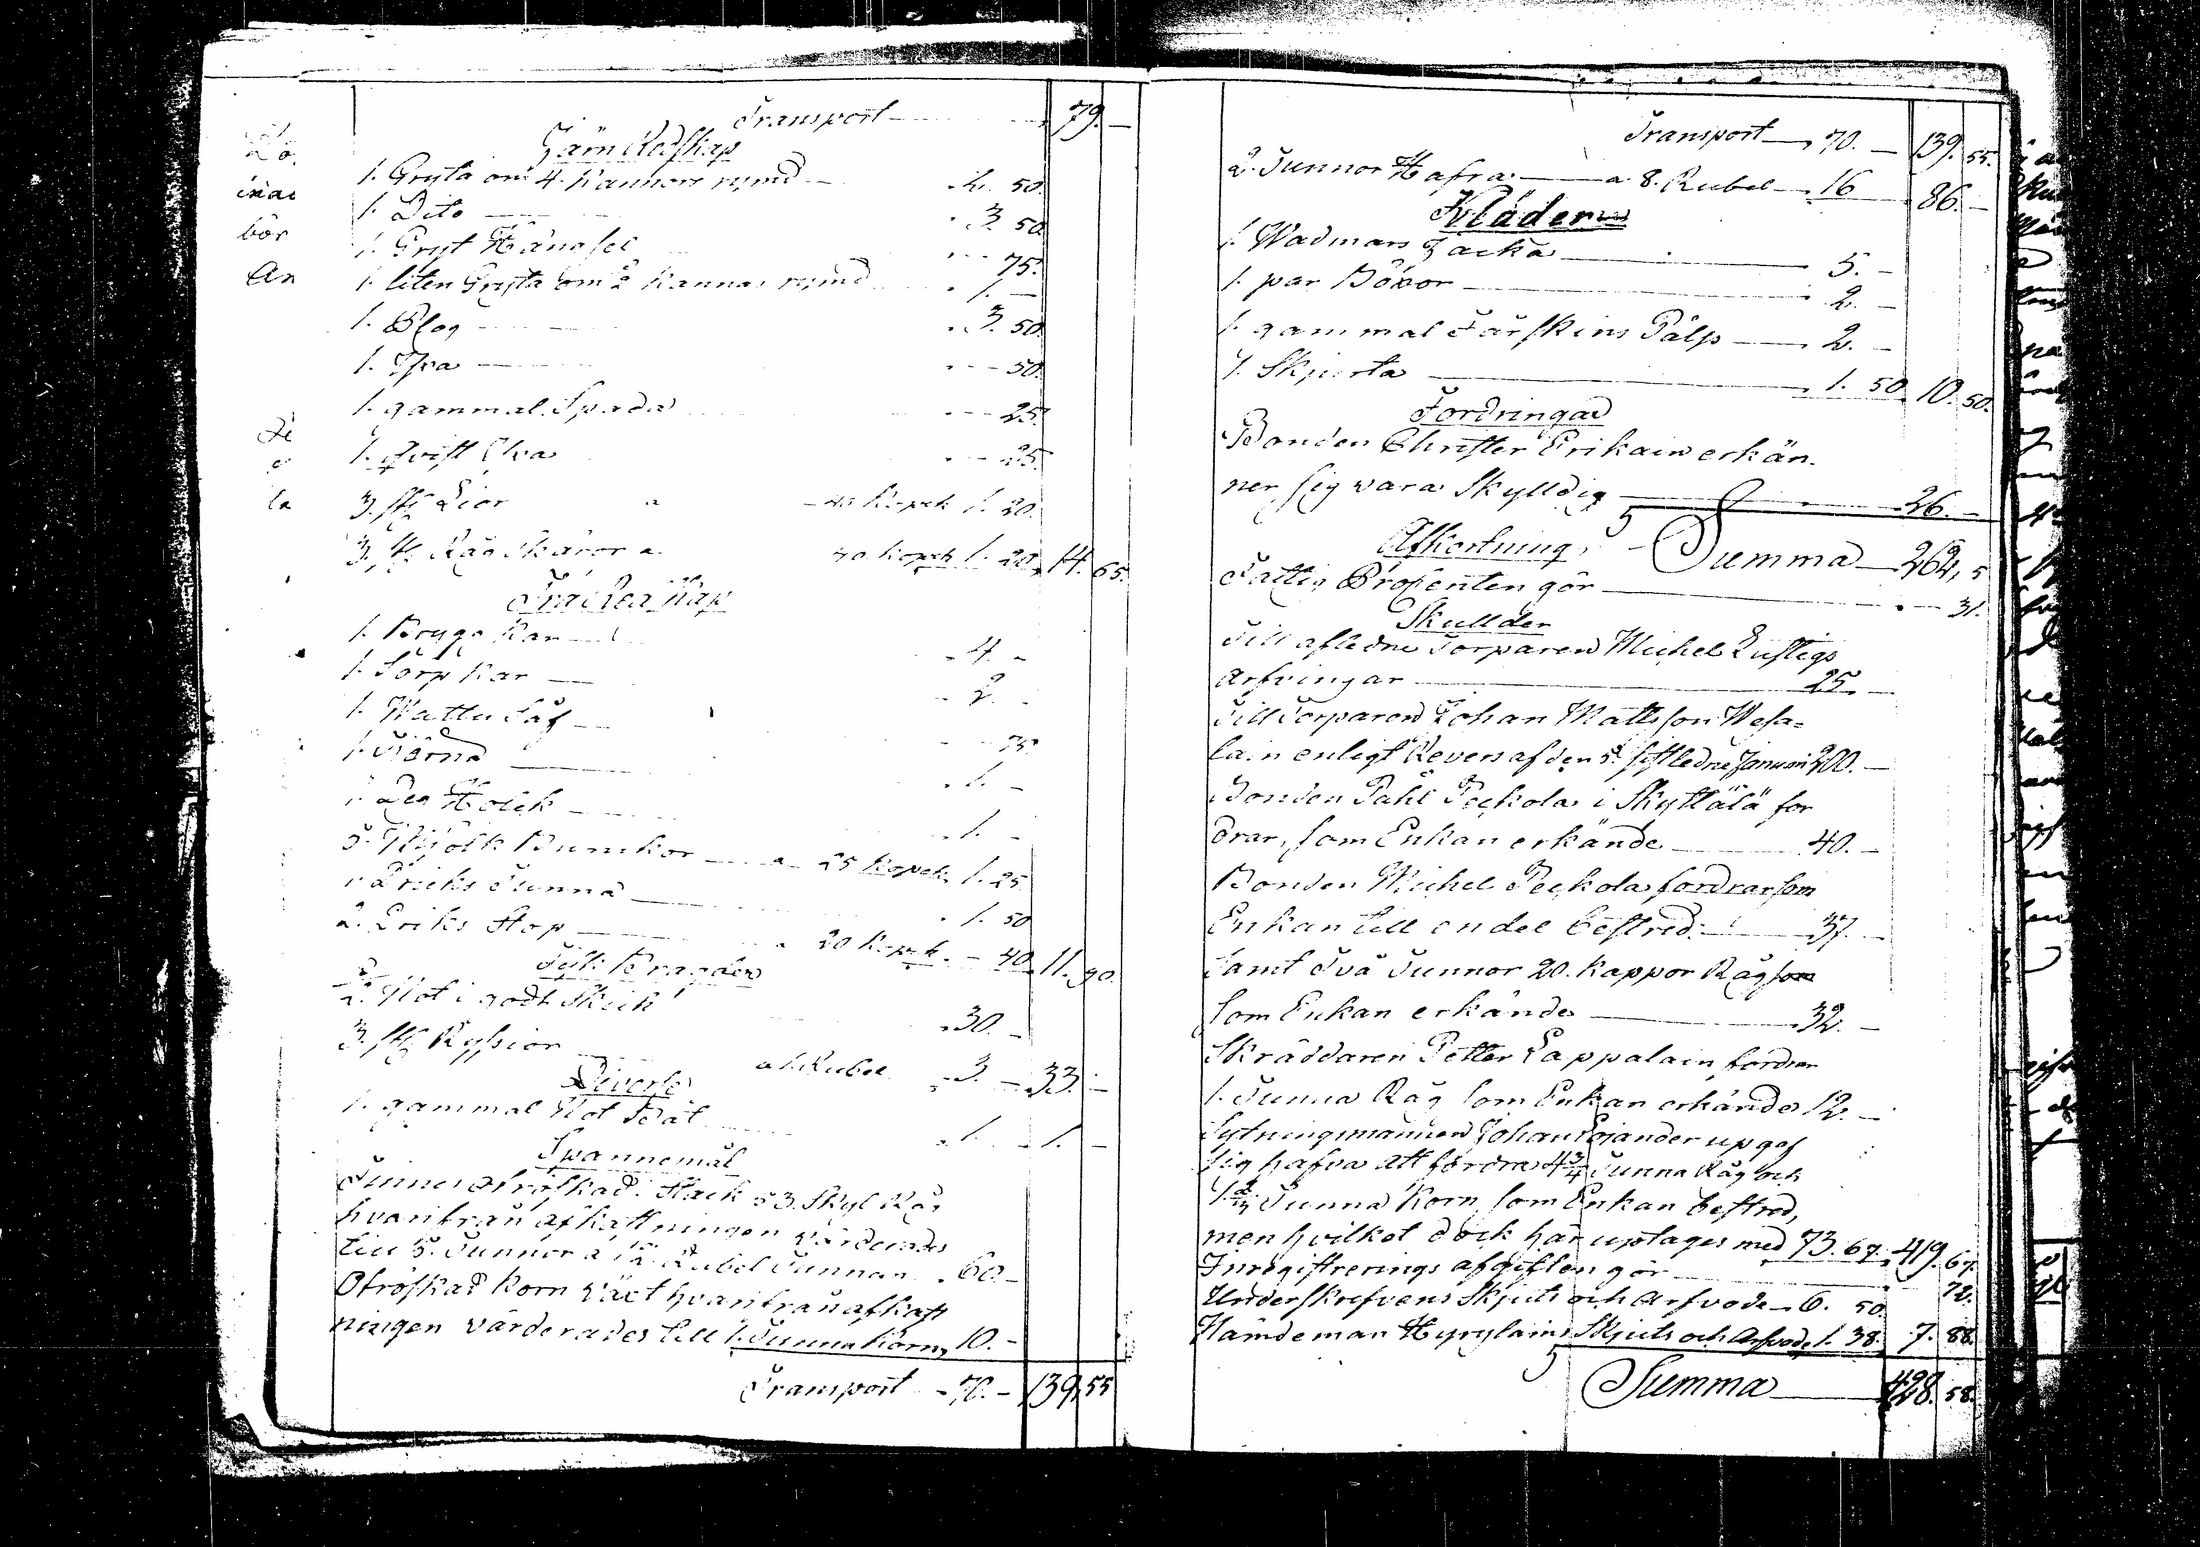 Transport 79. —
Järn Redskap
1. Gryta om 4. kannors rymd — 2. 50.
1. Dito — 3. 50
1. Gryt Hängsel 75.
1. liten Gryta om 2 kannas rymd 1. —
1. Plog 3. 50.
1. Yxa 50.
1. gammal Spada 25.
1. qvist Yxa 25.
3. st. Liar a 40 Kopek 1. 20.
3. st. Rågskäror a 40 kopek 1. 20. 14. 65.
Trä Redskap
1. Brygg Kar 4. —
1. Sörp Kar 2. —
1. Wattu Såf 75.
1. Tjärna 1. —
1. Deg Holck 1. —
5. Mjölk Bunckor a 25 kopek 1. 25
1. Dricks Tunna 1. 50
2. Driks Stop a 20 kopek 40. 11. 90.
Fisk Bragder
2. Not i godt Skick 30. —
3. st. Ryssior a 1. Rubel 3. — 33. —
Diverse
1. gammal Not Båt 1. — 1. —
Spannemål
Finnes otröskad i Stack 53. Skyl Råg
hvarifrån afkastningen värderades
till 5. Tunnor a 12 Rubel Tunnan 60. —
Otröskad Korn växt hvarifrån afkast
ningen värderades till 1. Tunna Korn, 10. —
Transport 70. — 139. 55
Transport 70. — 139. 55.
2. Tunnor Hafra — a 8. Rubel 16 86. —
Kläder
1. Wadmars Jacka 5. —
1. par Böxor 2. —
1. gammal Fårskins Päls 2. —
1. Skjorta 1. 50 10. 50.
Fordringar
Bonden Christer Erikain erkän-
ner sig vara Skylldig 26. —
Afkortning Summa 262, 5
Fattig Procenten gör 31.
Skullder
Till afledne Torparen Michel Lustigs
arfvingar 25. —
Till Torparen Johan Mattsson Wesa-
lain enligt Revers af den 5. sistledne Januari 200. —
Bonden Pahl Peckola i Skyttälä for
drar, som Enkan erkände 40. —
Bonden Michel Peckola fordrar som
Enkan till en del bestred 37. —
Samt Två Tunnor 20. kappor Råg som
som Enkan erkände 32. —
Skräddaren Petter Lappalain fordrar
1. Tunna Råg som Enkan erkände 12. —
Sytningsmannen Johan Ojander upgaf
sig hafva att fordra 4 3/4 Tunna Råg och
Tunna Korn, som Enkan bestred,
men hvilket dock här uptages med 73. 67. 419. 67.
Inregistrerings afgiften gör 72.
Underskrefvens Skjuts och Arfvode 6. 50.
Nämdeman Hyrylains Skjuts och Arfvode 1. 38. 7. 88.
Summa 428. 58.